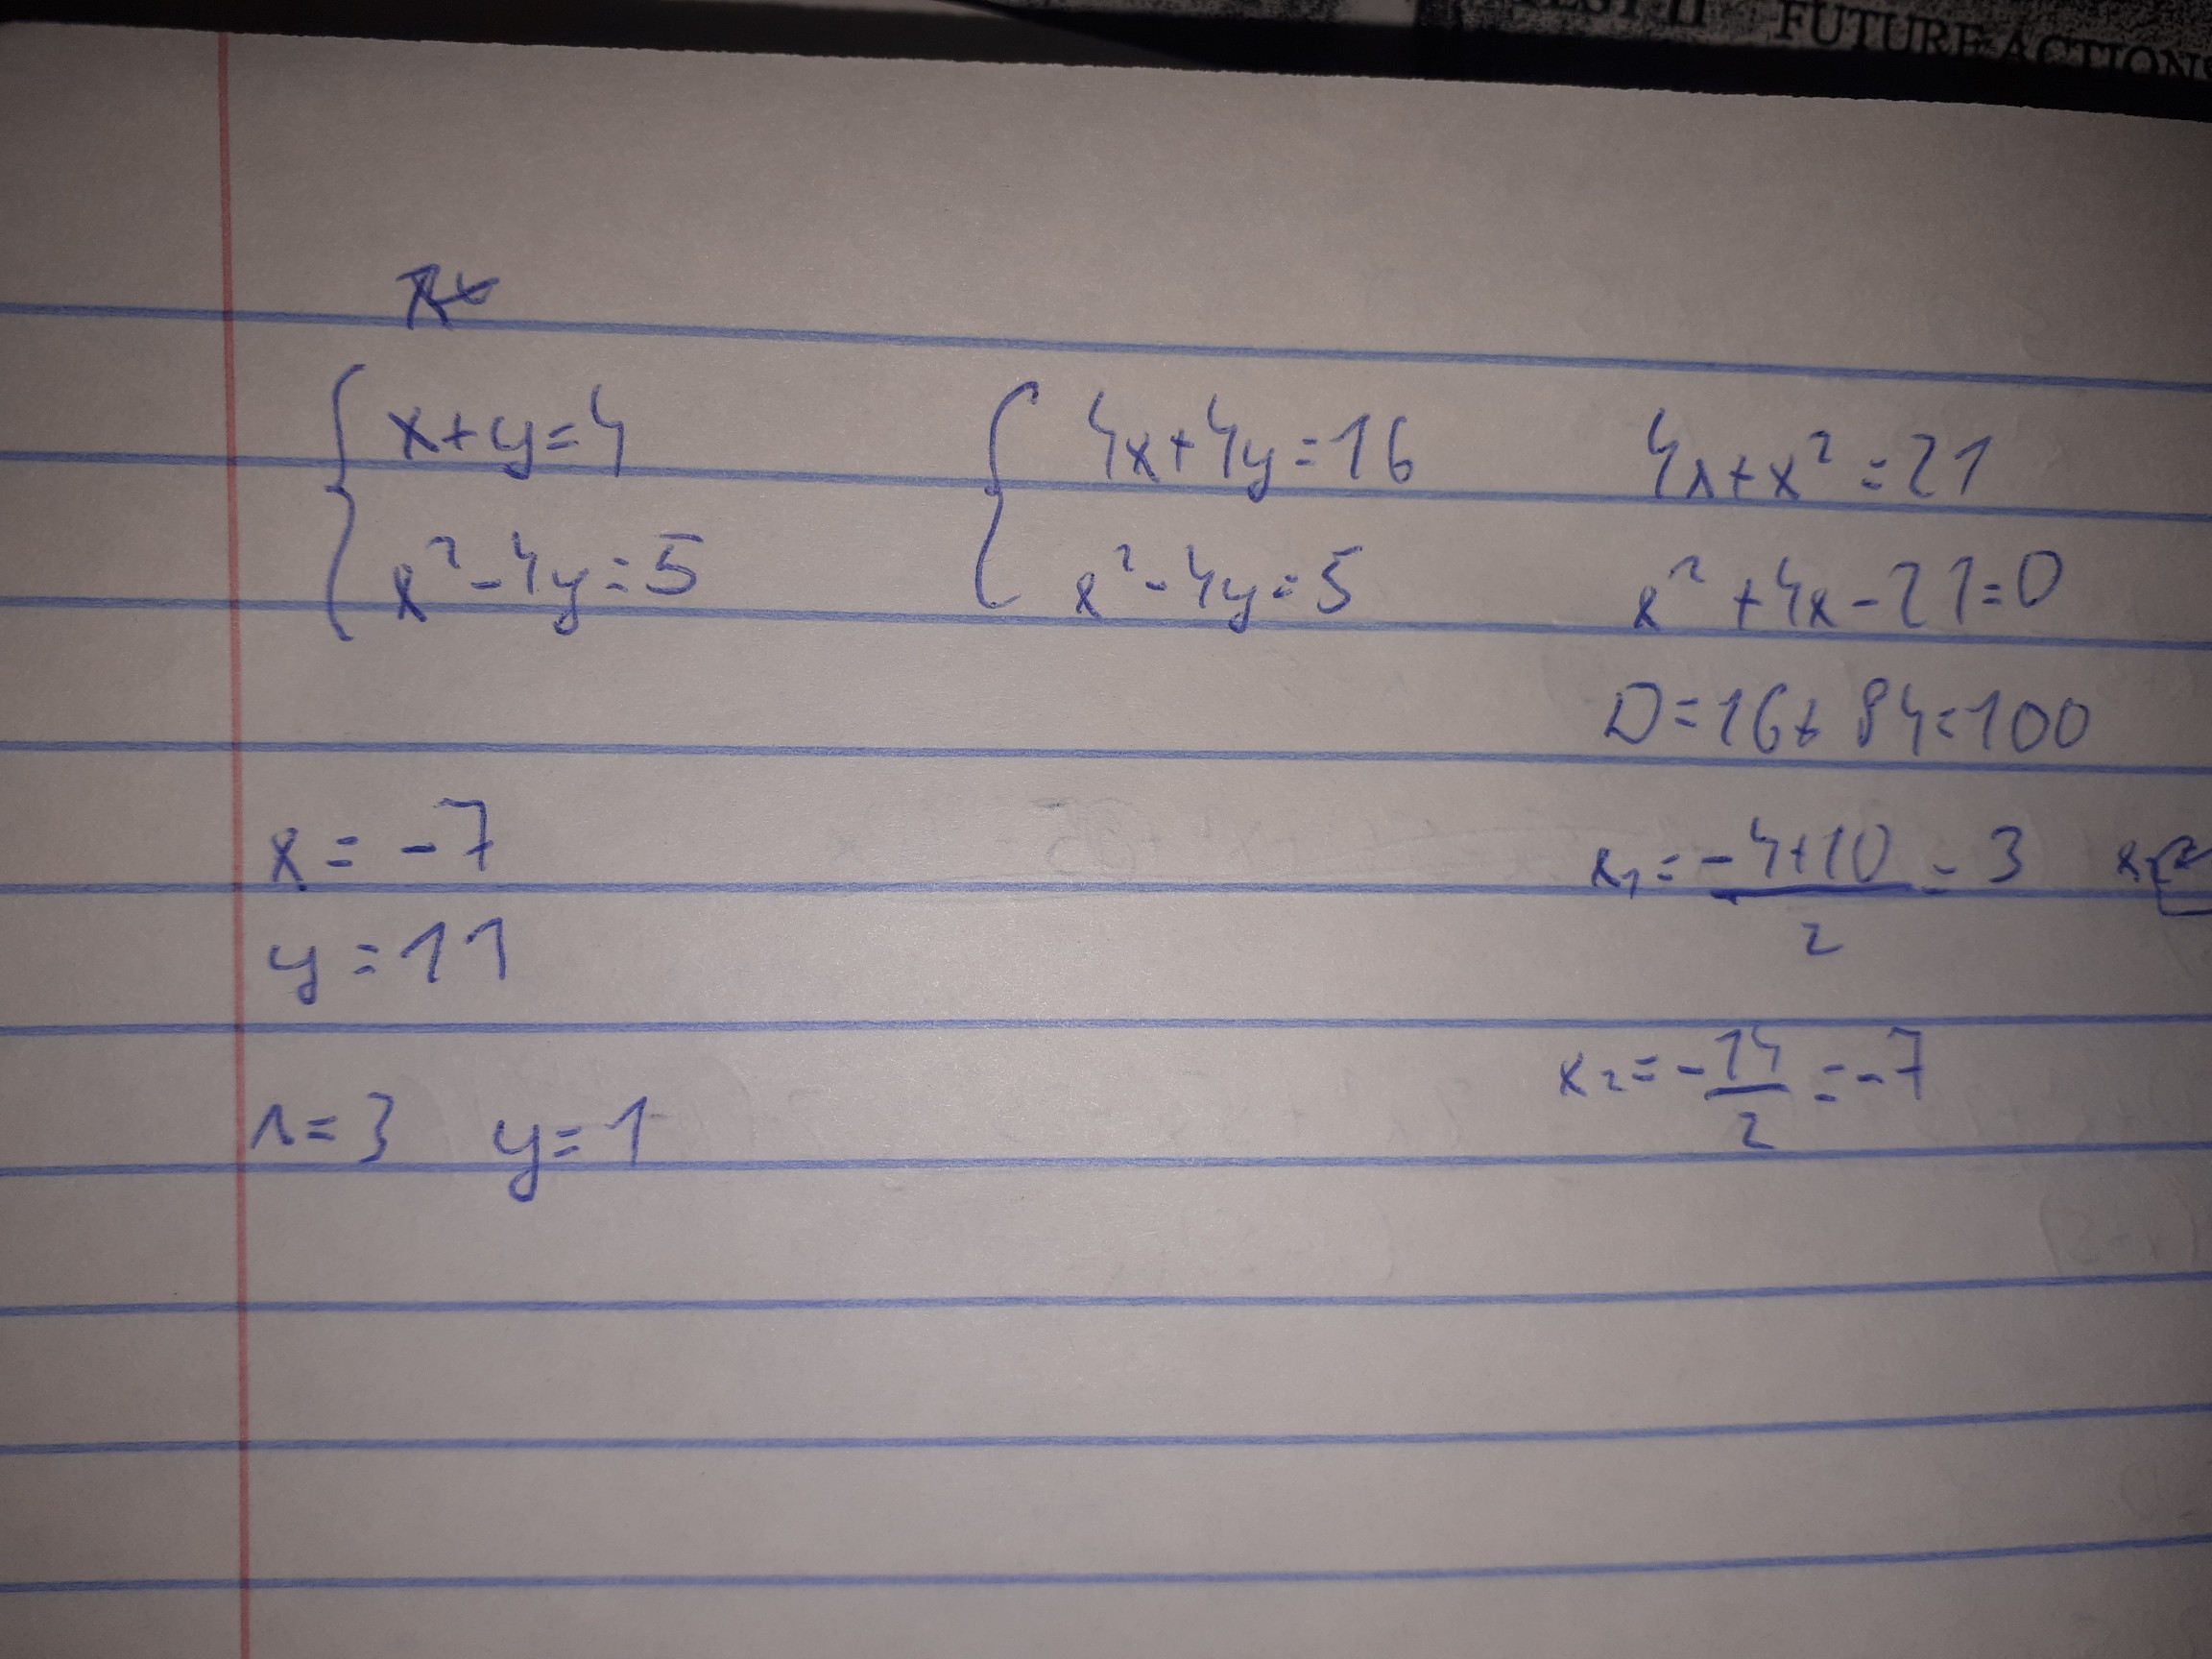 TEST II FUTURE ACTIONS
x+y=4
x²-4y=5
4x+4y=16
x²-4y=5
4x+x²=21
x²+4x-21=0
D=16+84=100
x₁=(-4+10)/2=3
x₂=-14/2=-7
x=-7
y=11
x=3 y=1